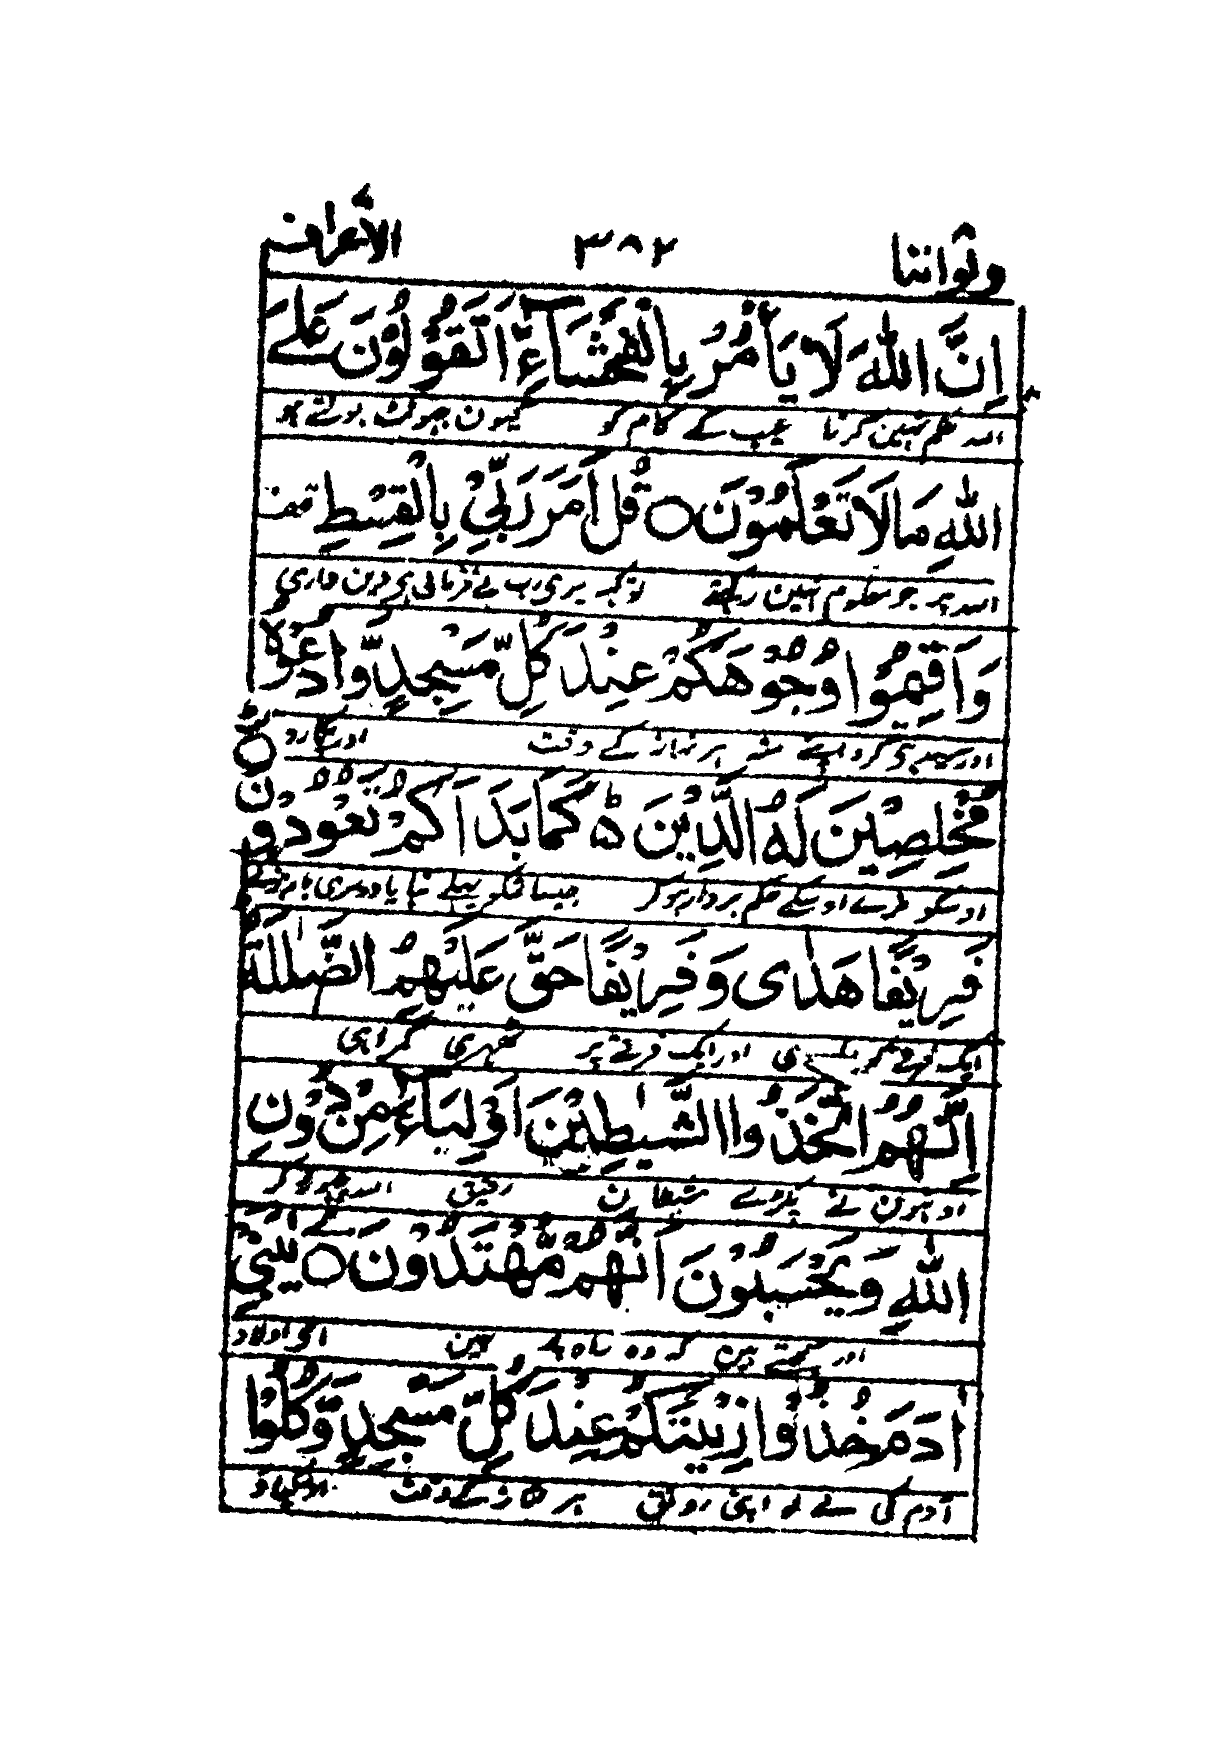 ولواننا ٣٨٢ الاعراف
اِنَّ اللّٰهَ لَا يَأْمُرُ بِالْفَحْشَآءِ اَتَقُوْلُوْنَ عَلَى
اللہ حکم نہین کرتا عیب کے کام کو کیون جھوٹ بولتے ہو
اللّٰهِ مَا لَا تَعْلَمُوْنَ ○ قُلْ اَمَرَ رَبِّيْ بِالْقِسْطِ قف
اللہ پر جو معلوم نہین رکھتے تو کہہ میری رب نے فرمائی ہی
وَاَقِيْمُوْا وُجُوْهَكُمْ عِنْدَ كُلِّ مَسْجِدٍ وَّادْعُوْهُ
اور سیدہی کرو اپنے منہ ہر نماز کے وقت اور پکارو
مُخْلِصِيْنَ لَهُ الدِّيْنَ ۵ كَمَا بَدَاَكُمْ تَعُوْدُوْنَ ○
اوسکو نرے اوسکے حکم بردار ہوکر جیسا تمکو پہلے بنایا دوسری بار
فَرِيْقًا هَدٰى وَفَرِيْقًا حَقَّ عَلَيْهِمُ الضَّلٰلَةُ
ایک فرقے کو اور ایک فرقے پر ٹھہری گمراہی
اِنَّهُمُ اتَّخَذُوا الشَّيٰطِيْنَ اَوْلِيَآءَ مِنْ دُوْنِ
اونہون نے پکڑے شیطان رفیق اللہ چھوڑ کر
اللّٰهِ وَيَحْسَبُوْنَ اَنَّهُمْ مُّهْتَدُوْنَ ○ يٰبَنِيْٓ
اور سمجھتے ہین کہ وہ راہ پر ہین ای اولاد
اٰدَمَ خُذُوْا زِيْنَتَكُمْ عِنْدَ كُلِّ مَسْجِدٍ وَّكُلُوْا
آدم کی لے لو اپنی رونق ہر نماز کے وقت اور کھاو